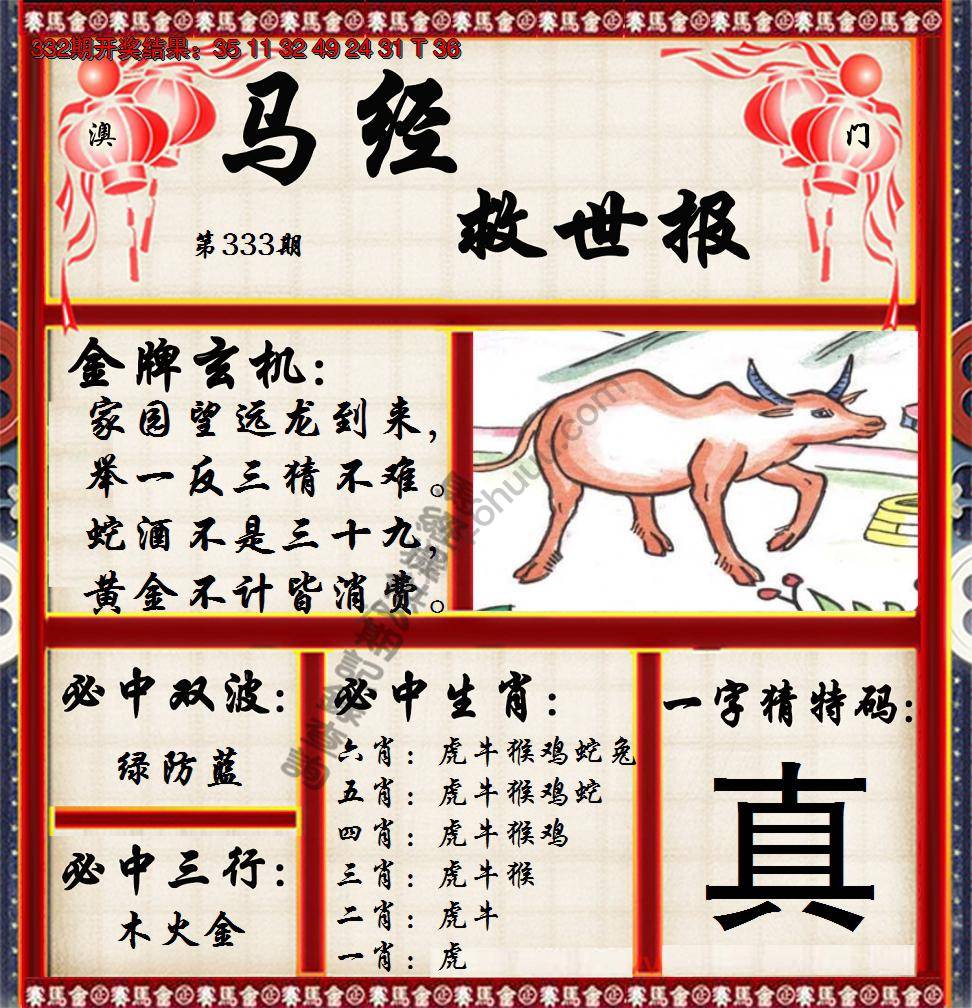 332期开奖结果：35 11 32 49 24 31 T 36
澳
门
马经
救世报
第333期
金牌玄机：
家园望远龙到来，
举一反三猜不难。
蛇酒不是三十九，
黄金不计皆消费。
必中双波：
绿防蓝
必中三行：
木火金
必中生肖：
六肖：虎牛猴鸡蛇兔
五肖：虎牛猴鸡蛇
四肖：虎牛猴鸡
三肖：虎牛猴
二肖：虎牛
一肖：虎
一字猜特码：
真